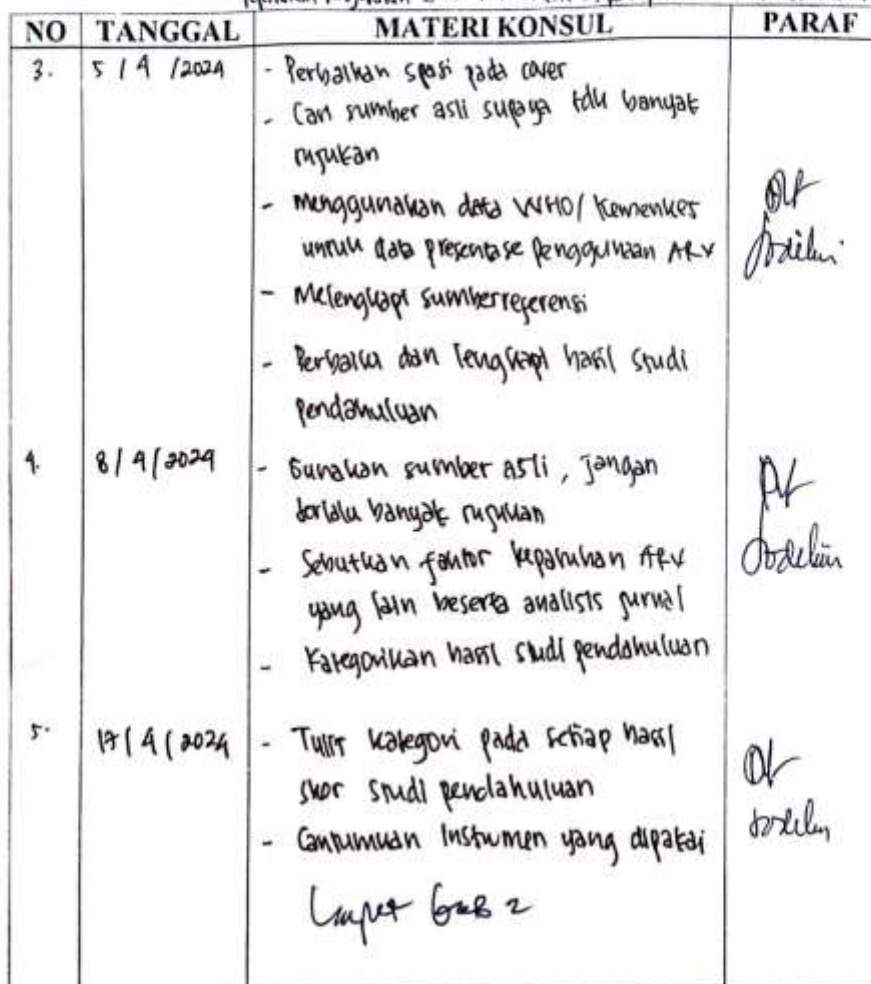 NO TANGGAL MATERI KONSUL PARAF
3. 5/4/2024 - Perbaikan spasi pada cover
- Cari sumber asli supaya tdk banyak
rujukan
- Menggunakan data WHO/ Kemenkes
untuk data presentase penggunaan ARV
- Melengkapi sumber referensi
- Perbaiki dan lengkapi hasil studi
pendahuluan
4. 8/4/2024 - Gunakan sumber asli, jangan
terlalu banyak rujukan
- Sebutkan faktor kepatuhan ARV
yang lain beserta analisis jurnal
- Kategorikan hasil studi pendahuluan
5. 17/4/2024 - Tulis kategori pada setiap hasil
skor studi pendahuluan
- Cantumkan instrumen yang dipakai
BAB 2